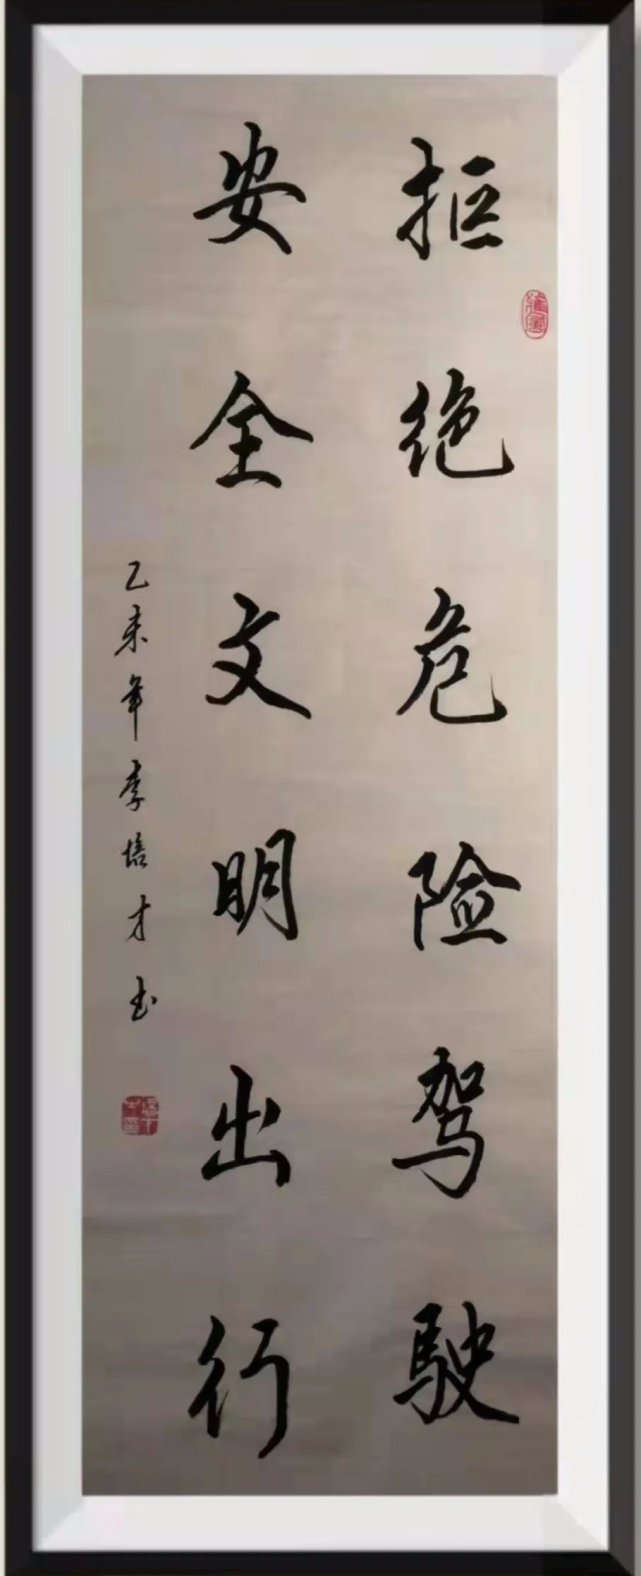 拒绝危险驾駛
安全文明出行
乙未年李培才书